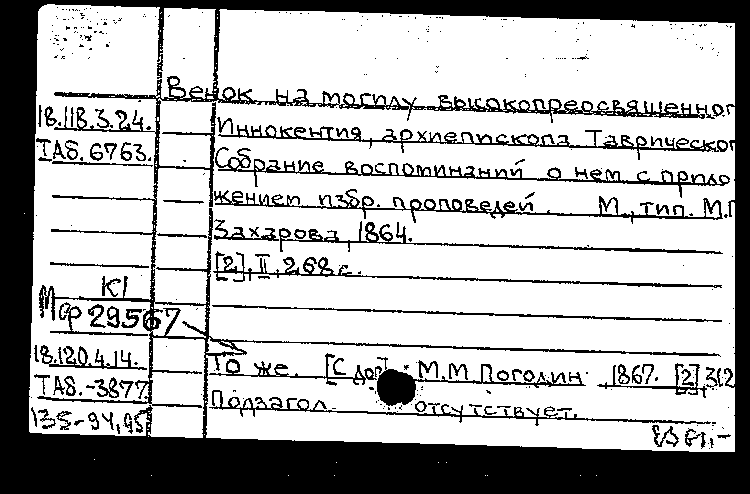 Венок на могилу высокопреосвященног
18.118.3.24.
Иннокентия, архиепископа Таврическог
ТАБ. 6763.
Собрание воспоминаний о нем с прило-
жением избр. проповедей. М., тип. М.П
Захарова, 1864.
[2], II, 268 с.
К1
Мф 29567
18.120.4.14.
То же. [С доп М.М Погодин 1867. [2] 312
ТАБ.-3877
Подзагол. отсутствует.
135-94,95